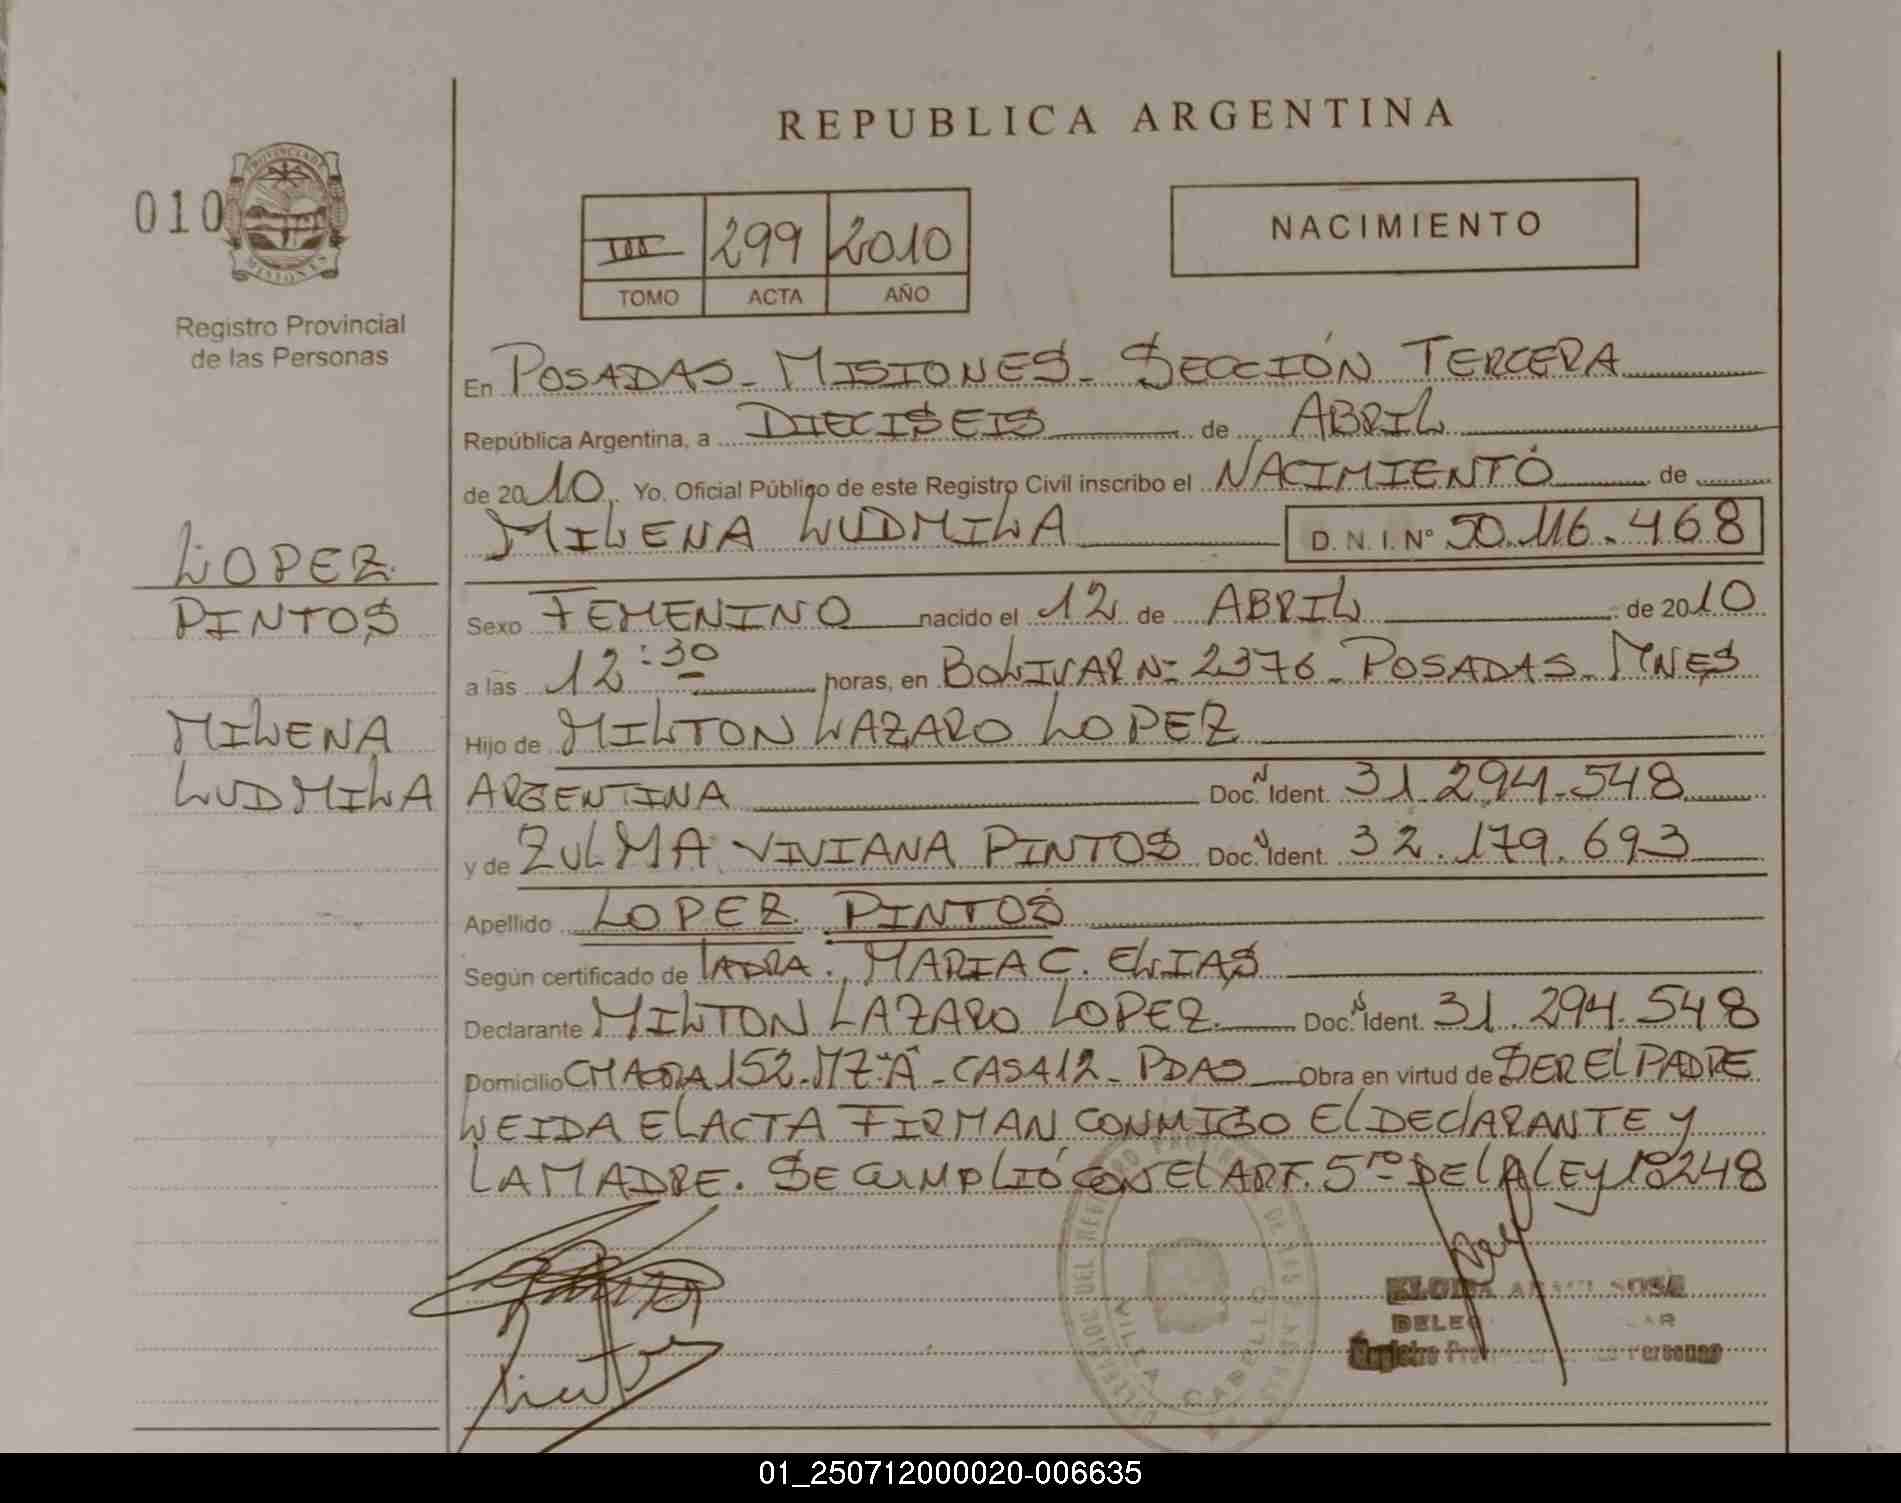 REPUBLICA ARGENTINA
010
PROVINCIA DE MISIONES
Registro Provincial
de las Personas
III 299 2010
TOMO ACTA AÑO
NACIMIENTO
En POSADAS - MISIONES - SECCIÓN TERCERA
República Argentina, a DIECISEIS de ABRIL
de 2010 Yo. Oficial Público de este Registro Civil inscribo el NACIMIENTO de
MILENA LUDMILA D.N.I. Nº 50.116.468
LOPEZ
PINTOS
MILENA
LUDMILA
Sexo FEMENINO nacido el 12 de ABRIL de 2010
a las 12:30 horas, en BOLIVAR Nº 2376 - POSADAS - MNES
Hijo de MILTON LAZARO LOPEZ
ARGENTINA Doc. N Ident. 31.294.548
y de ZULMA VIVIANA PINTOS Doc. N Ident. 32.179.693
Apellido LOPEZ PINTOS
Según certificado de LA DRA. MARIA C. ELIAS
Declarante MILTON LAZARO LOPEZ Doc. N Ident. 31.294.548
Domicilio CHACRA 152 - MZ "A" - CASA 12 - PDAS Obra en virtud de SER EL PADRE
LEIDA EL ACTA FIRMAN CONMIGO EL DECLARANTE Y
LA MADRE. SE CUMPLIÓ CON EL ART. 5º DE LA LEY 18248
DELEGADO DEL REGISTRO PROV. DE LAS PERSONAS
VILLA CABELLO
SOSA
Registro Provincial de las Personas
01_250712000020-006635